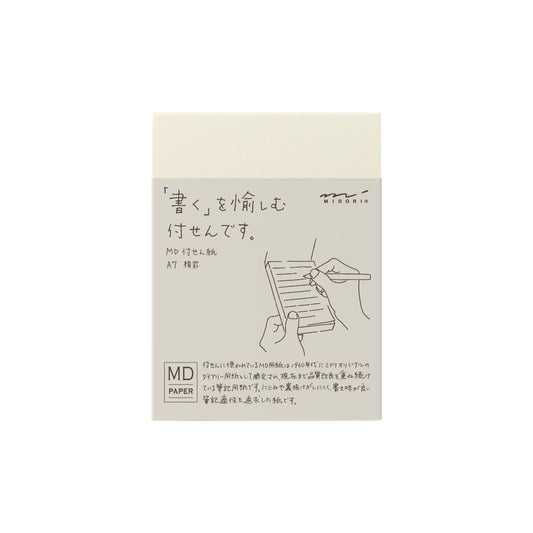 「書く」を愉しむ
付せんです。
MD 付せん紙
A7 横罫
MIDORI®
MD
PAPER
付せんに使われているMD用紙は1960年代にミドリオリジナルの
ダイアリー用紙として開発され、現在まで品質改良を重ね続け
ている筆記用紙です。にじみや裏抜けがしにくく、書き味が良い
筆記適性を追求した紙です。